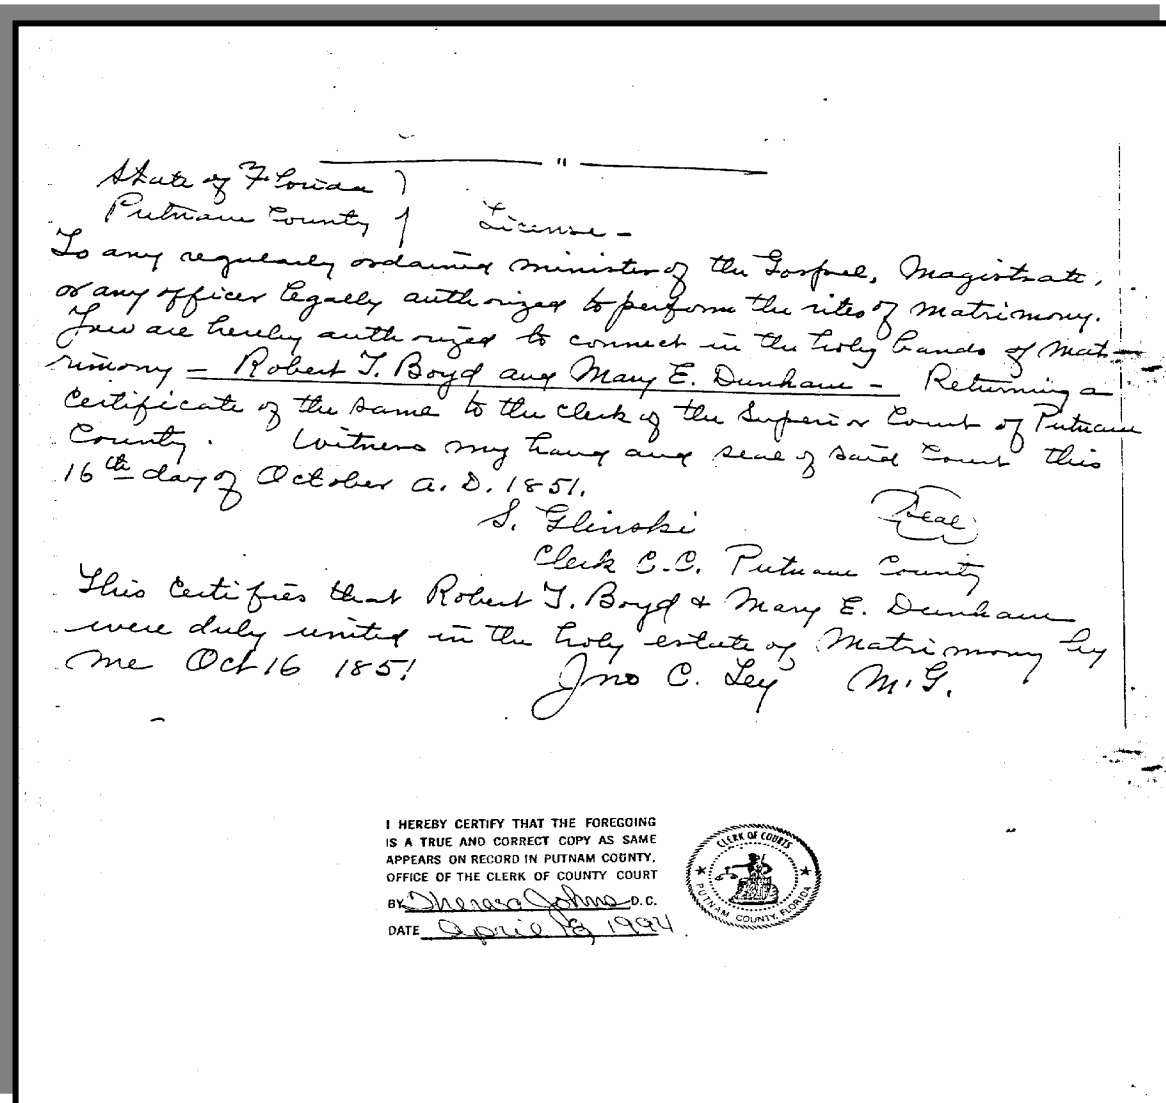 "
State of Florida )
Putnam County ) License -
To any regularly ordained minister of the Gospel, Magistrate,
or any officer legally authorized to perform the rites of matrimony.
You are hereby authorized to connect in the holy bands of mat-
rimony - Robert T. Boyd and Mary E. Dunham - Returning a
certificate of the same to the clerk of the Superior Court of Putnam
County. Witness my hand and seal of said Court this
16th day of October A. D. 1851.
S. Glinski Seal
Clerk C.C. Putnam County
This certifies that Robert T. Boyd & Mary E. Dunham
were duly united in the holy estate of Matrimony by
me Oct 16 1851 Jno C. Ley M.G.
I HEREBY CERTIFY THAT THE FOREGOING
IS A TRUE AND CORRECT COPY AS SAME
APPEARS ON RECORD IN PUTNAM COUNTY,
OFFICE OF THE CLERK OF COUNTY COURT
BY Theresa Johns D.C.
DATE April 1994
CLERK OF COURTS
PUTNAM COUNTY, FLORIDA